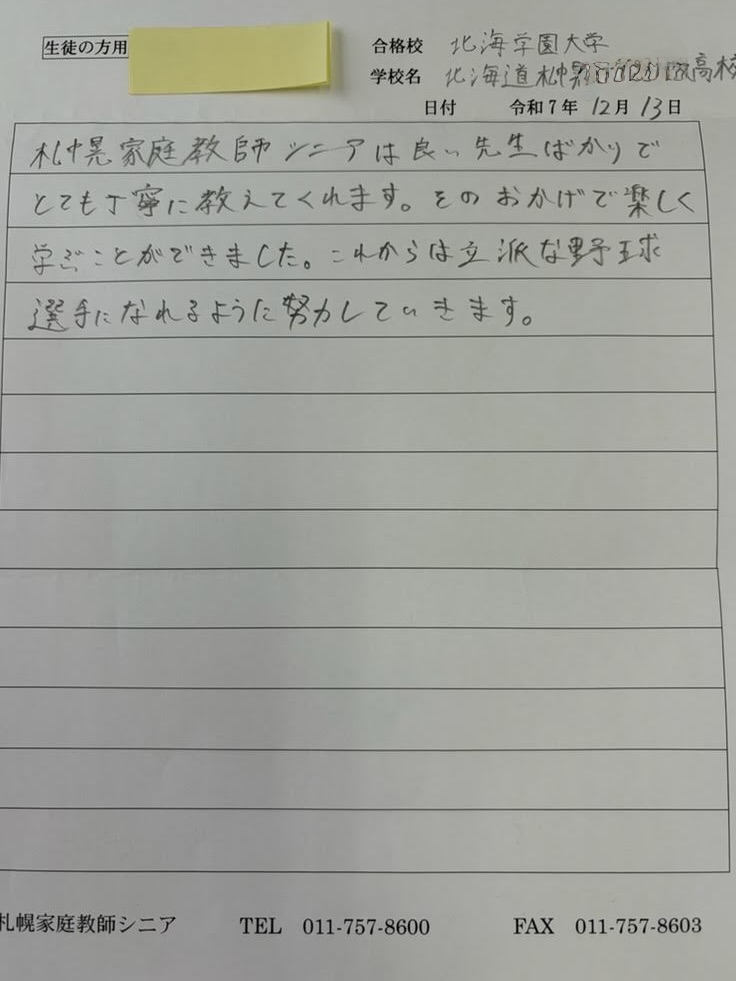 生徒の方用
合格校 北海学園大学
学校名 北海道札幌 高校
日付 令和7年 12月 13日
札幌家庭教師シニアは良い先生ばかりで
とても丁寧に教えてくれます。そのおかげで楽しく
学ぶことができました。これからは立派な野球
選手になれるように努力していきます。
札幌家庭教師シニア TEL 011-757-8600 FAX 011-757-8603